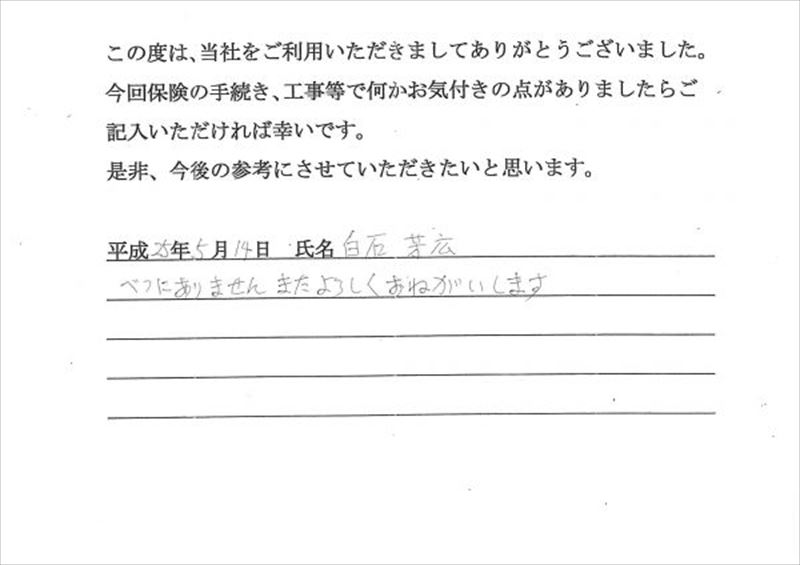 この度は、当社をご利用いただきましてありがとうございました。
今回保険の手続き、工事等で何かお気付きの点がありましたらご
記入いただければ幸いです。
是非、今後の参考にさせていただきたいと思います。
平成25年5月14日 氏名 白石 芽広
べつにありません またよろしくおねがいします